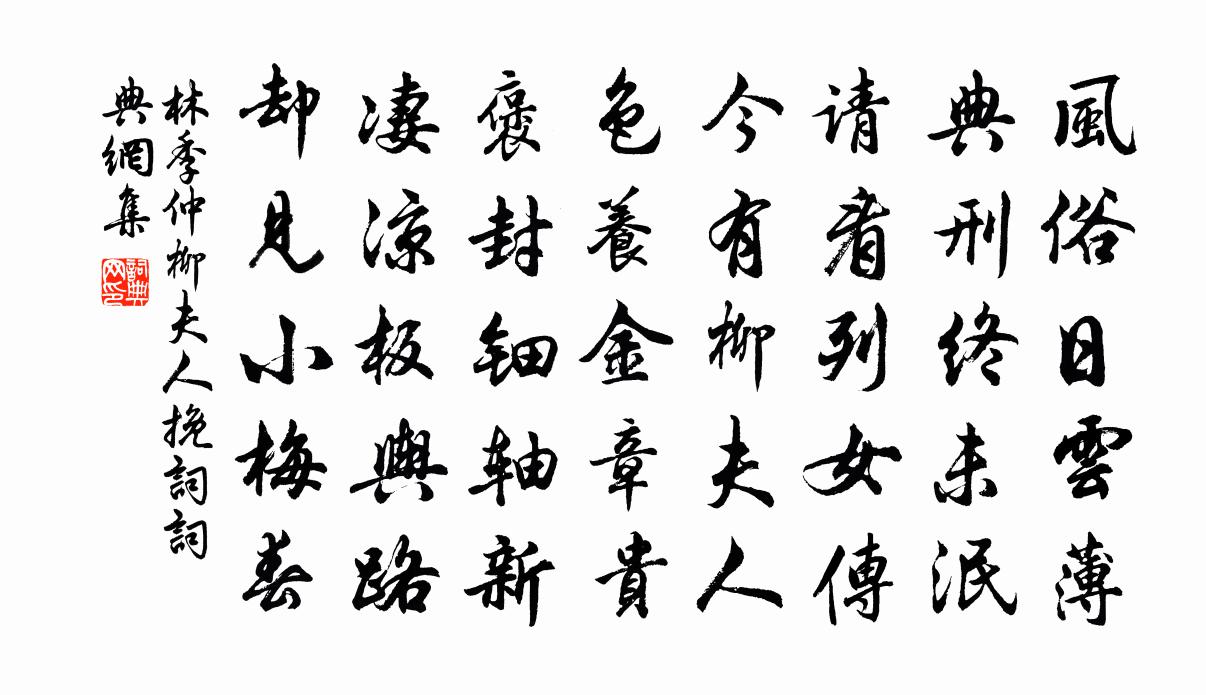 風俗日雲薄
典刑終未泯
请看列女傳
今有柳夫人
色養金章貴
褒封鈿軸新
凄涼板輿路
却見小梅春
林季仲柳夫人挽詞詞
典網集
詞典
网印